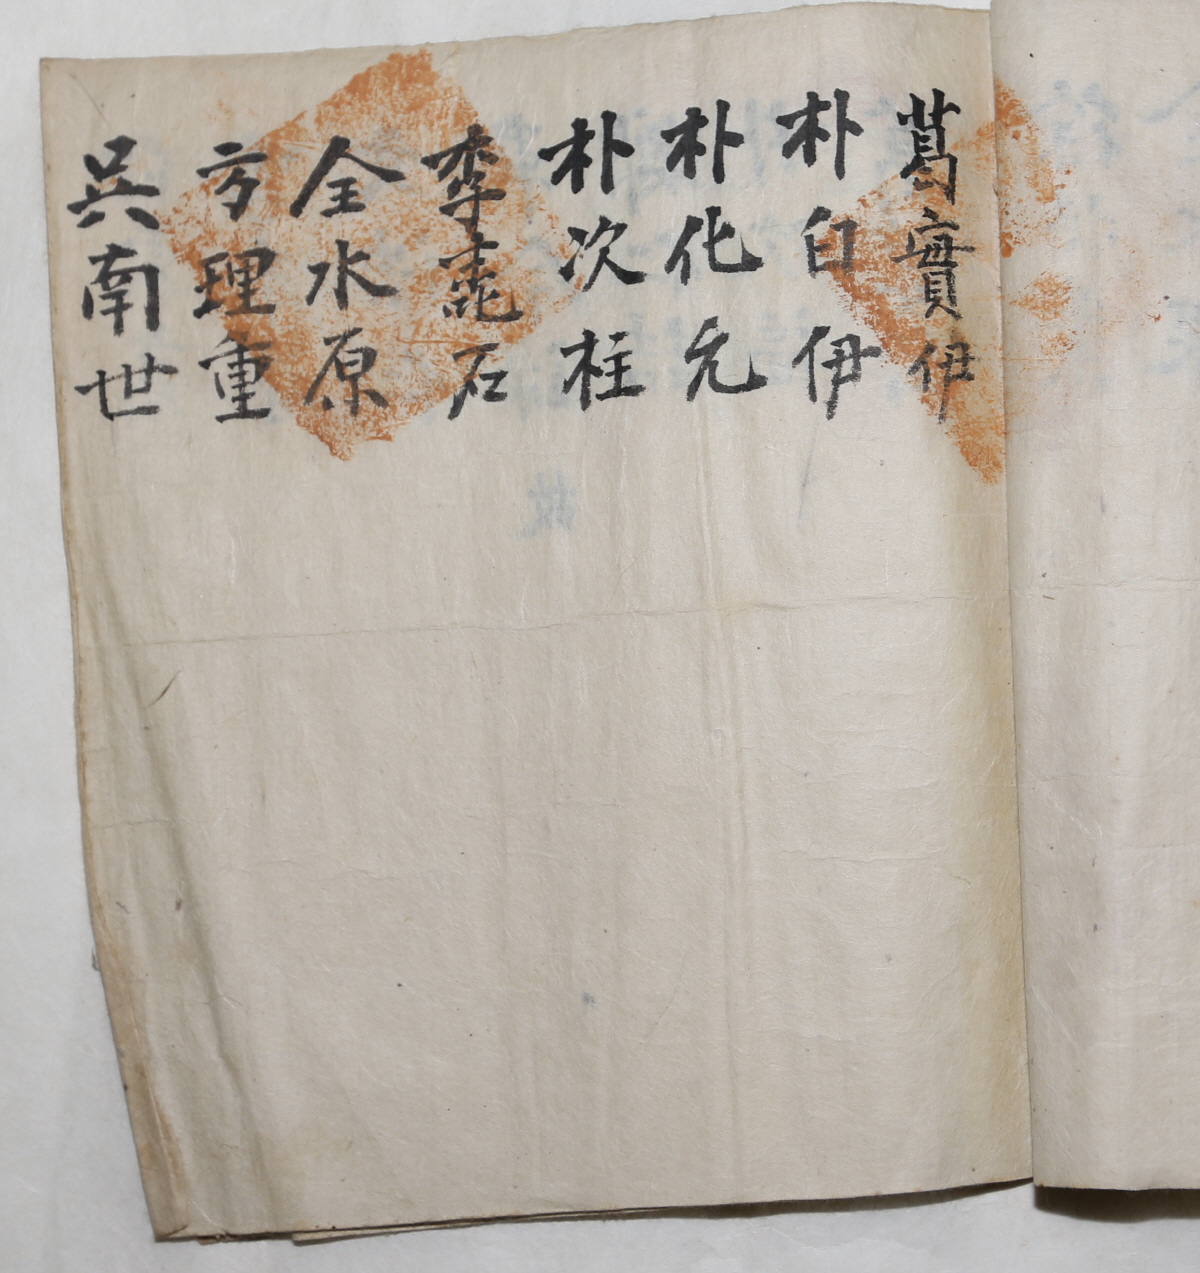 葛實伊
朴白伊
朴化允
朴次柱
李 石
全水原
方理重
吳南世